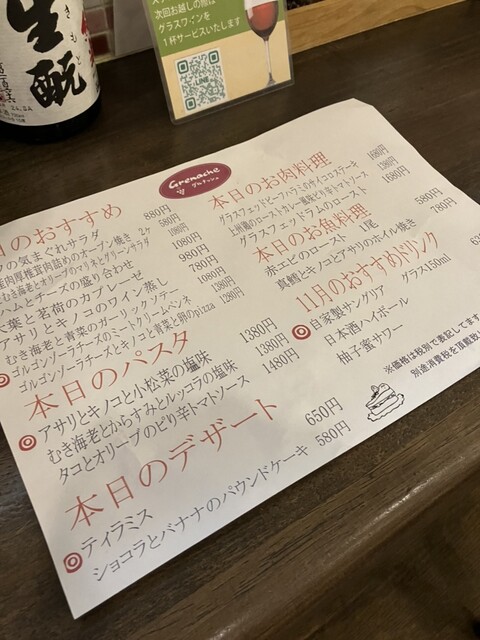 生酛
きもと
次回お越しの際は
グラスワインを
1杯サービスいたします
LINE
Grenache
グルナッシュ
日のおすすめ
クの気まぐれサラダ 880円
産肉厚椎茸肉詰めのオーブン焼き 2ケ 580円
むき海老とオリーブのマリネとグリーンサラダ 1080円
ハムとチーズの盛り合わせ 1080円
三葉と茗荷のカプレーゼ 980円
アサリとキノコのワイン蒸し 780円
むき海老と青菜のガーリックソテー 1080円
ゴルゴンゾーラチーズのミートクリームペンネ 1380円
ゴルゴンゾーラチーズとキノコと青菜と卵のpizza 1280円
本日のパスタ
アサリとキノコと小松菜の塩味 1380円
むき海老とからすみとルッコラの塩味 1380円
タコとオリーブのピり辛トマトソース 1480円
本日のデザート
ティラミス 650円
ショコラとバナナのパウンドケーキ 580円
本日のお肉料理
グラスフェッドビーフハラミのサイコロステーキ 1680円
上州鶏のローストカレー風味ピり辛トマトソース 1380円
グラスフェッドラムのロースト 1680円
本日のお魚料理
赤エビのロースト 1尾 580円
真鱈とキノコとアサリのホイル焼き 780円
11月のおすすめドリンク
自家製サングリア グラス150ml
日本酒ハイボール
柚子蜜サワー
※価格は税別で表記してます
別途消費税を頂戴致し